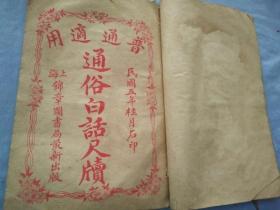 普通適用
民國五年桂月石印
通俗白話尺牘
上海錦章圖書局最新出版